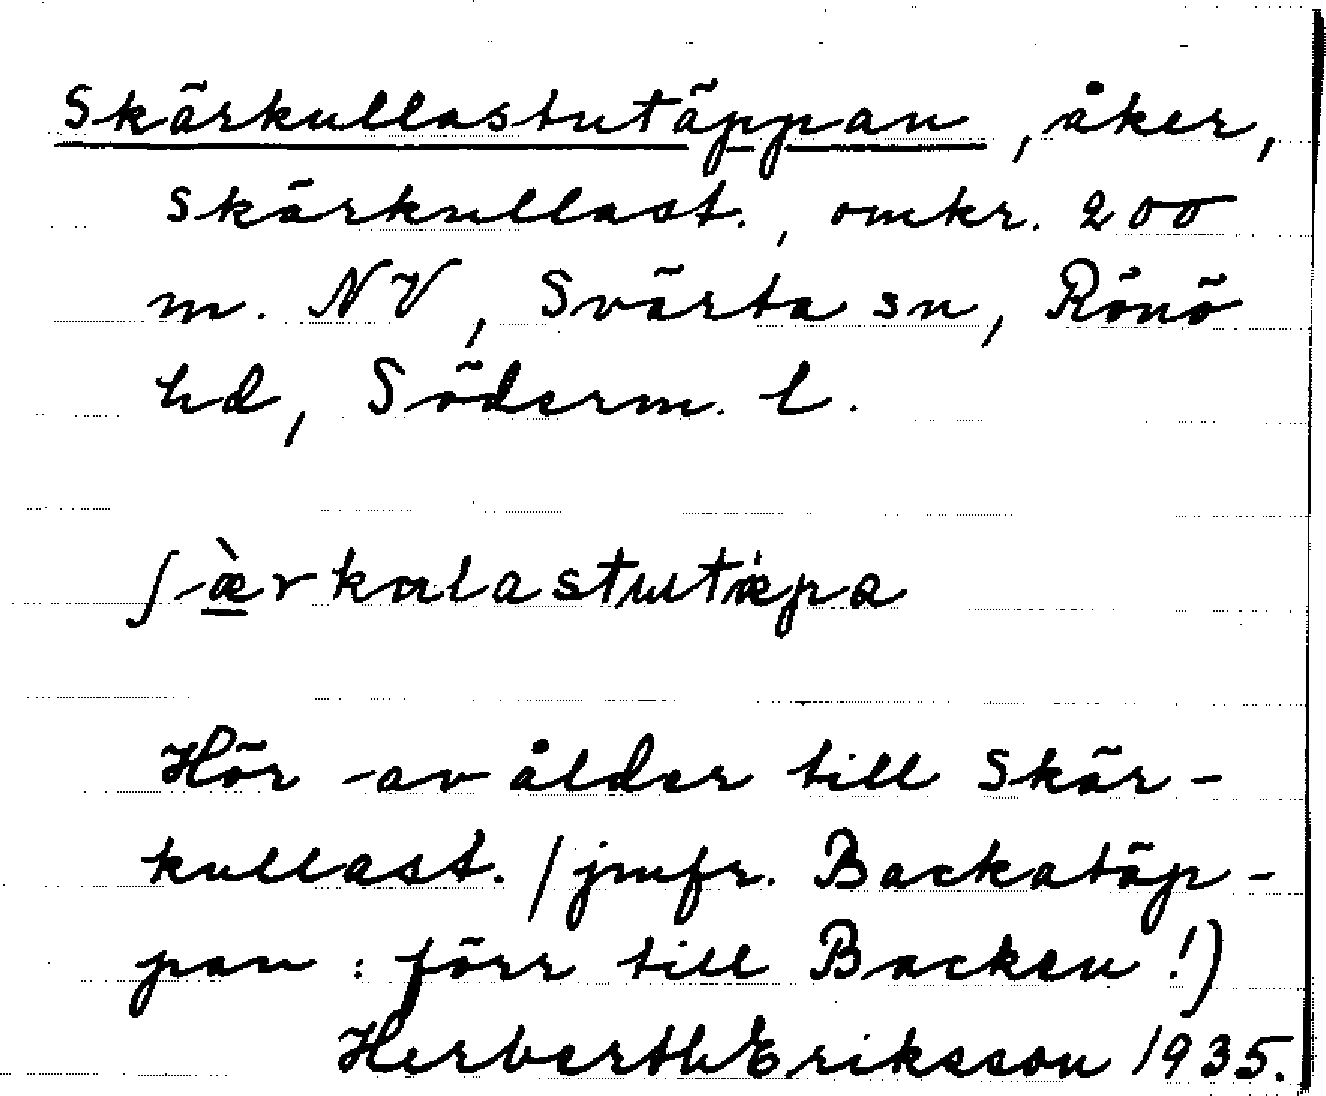 Skärkullastutäppan, åker,
Skärkullast., omkr. 200
m. NV, Svärta sn, Rönö
hd, Söderm. l.
ʃæ̀rkulastutæpa
Hör av ålder till Skär-
kullast. (jmfr. Backatäp-
pan: förr till Backen!)
Herberth Eriksson 1935.